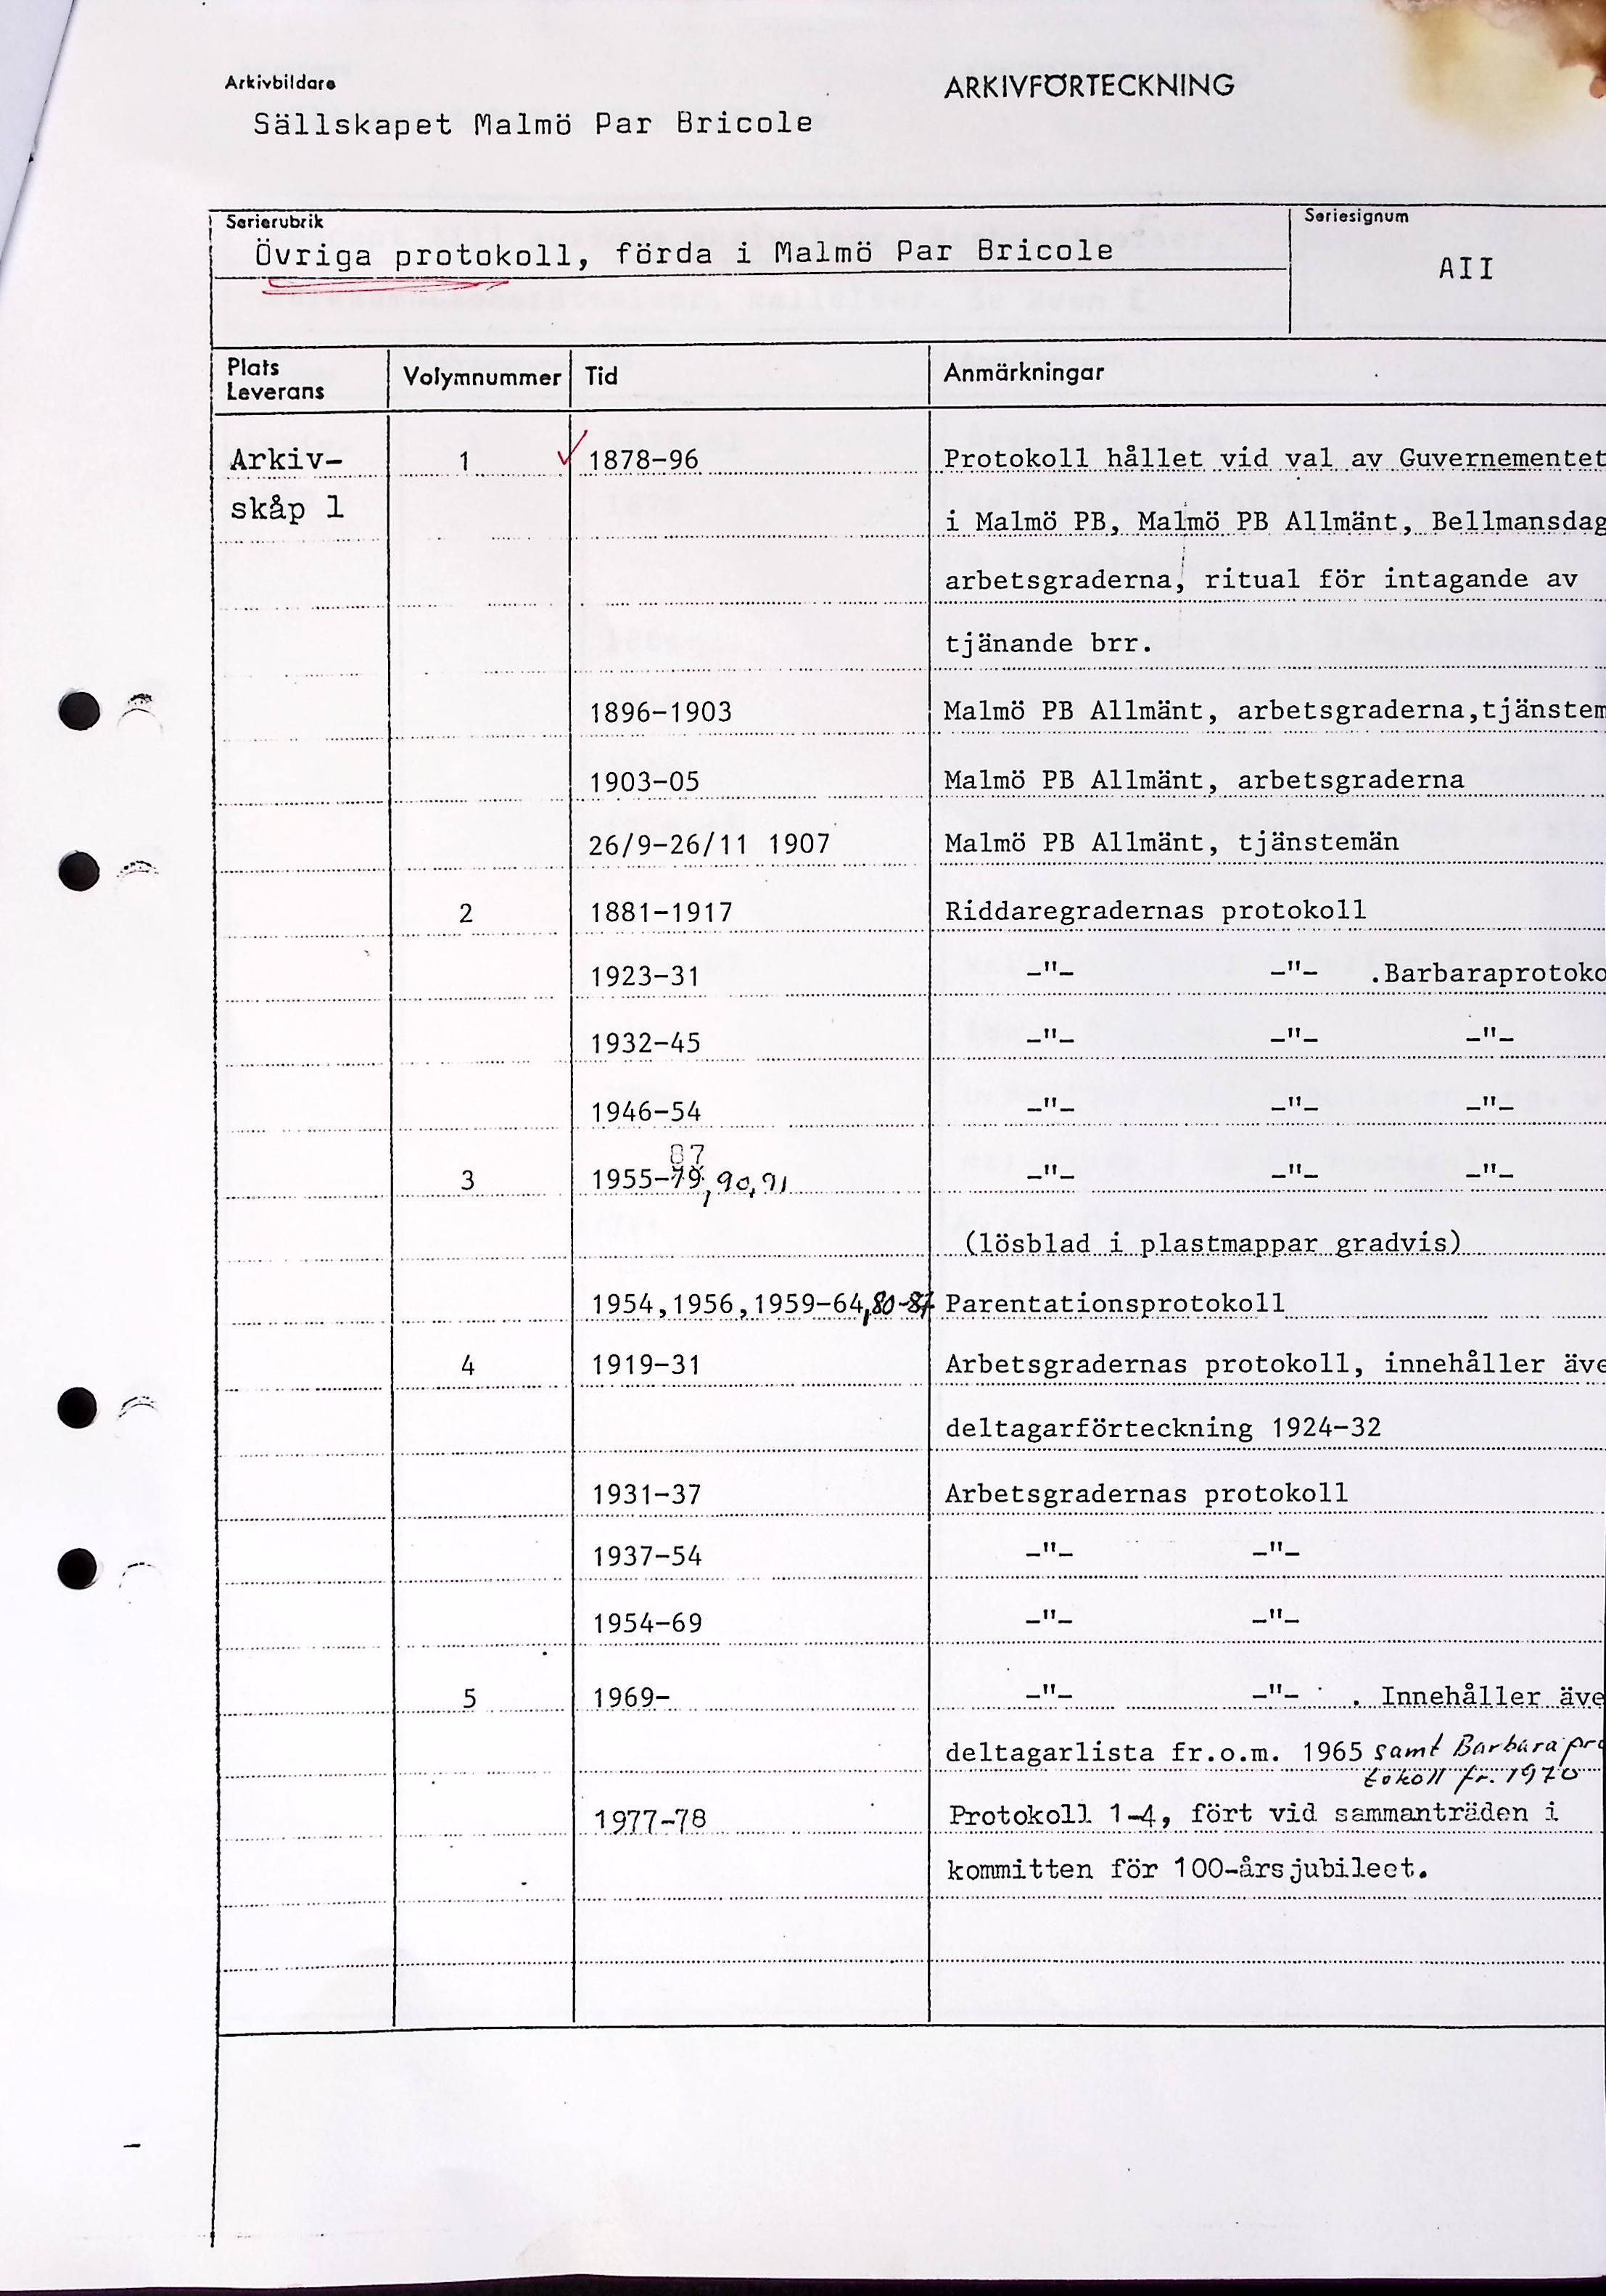 Arkivbildare
ARKIVFÖRTECKNING
Sällskapet Malmö Par Bricole
Serierubrik
Seriesignum
Övriga protokoll, förda i Malmö Par Bricole
AII
Plats
Leverans
Volymnummer
Tid
Anmärkningar
Arkiv- 1 1878-96 Protokoll hållet vid val av Guvernementet
skåp 1 i Malmö PB, Malmö PB Allmänt, Bellmansdag
arbetsgraderna, ritual för intagande av
tjänande brr.
1896-1903 Malmö PB Allmänt, arbetsgraderna,tjänstem
1903-05 Malmö PB Allmänt, arbetsgraderna
26/9-26/11 1907 Malmö PB Allmänt, tjänstemän
2 1881-1917 Riddaregradernas protokoll
1923-31 -"- -"- .Barbaraprotoko
1932-45 -"- -"- -"-
1946-54 -"- -"- -"-
87
3 1955-79,90,91 -"- -"- -"-
(lösblad i plastmappar gradvis)
1954,1956,1959-64,80-87 Parentationsprotokoll
4 1919-31 Arbetsgradernas protokoll, innehåller äve
deltagarförteckning 1924-32
1931-37 Arbetsgradernas protokoll
1937-54 -"- -"-
1954-69 -"- -"-
5 1969- -"- -"- . Innehåller äve
deltagarlista fr.o.m. 1965 samt Barbara pro
tokoll fr. 1970
1977-78 Protokoll 1-4, fört vid sammanträden i
kommitten för 100-årsjubileet.